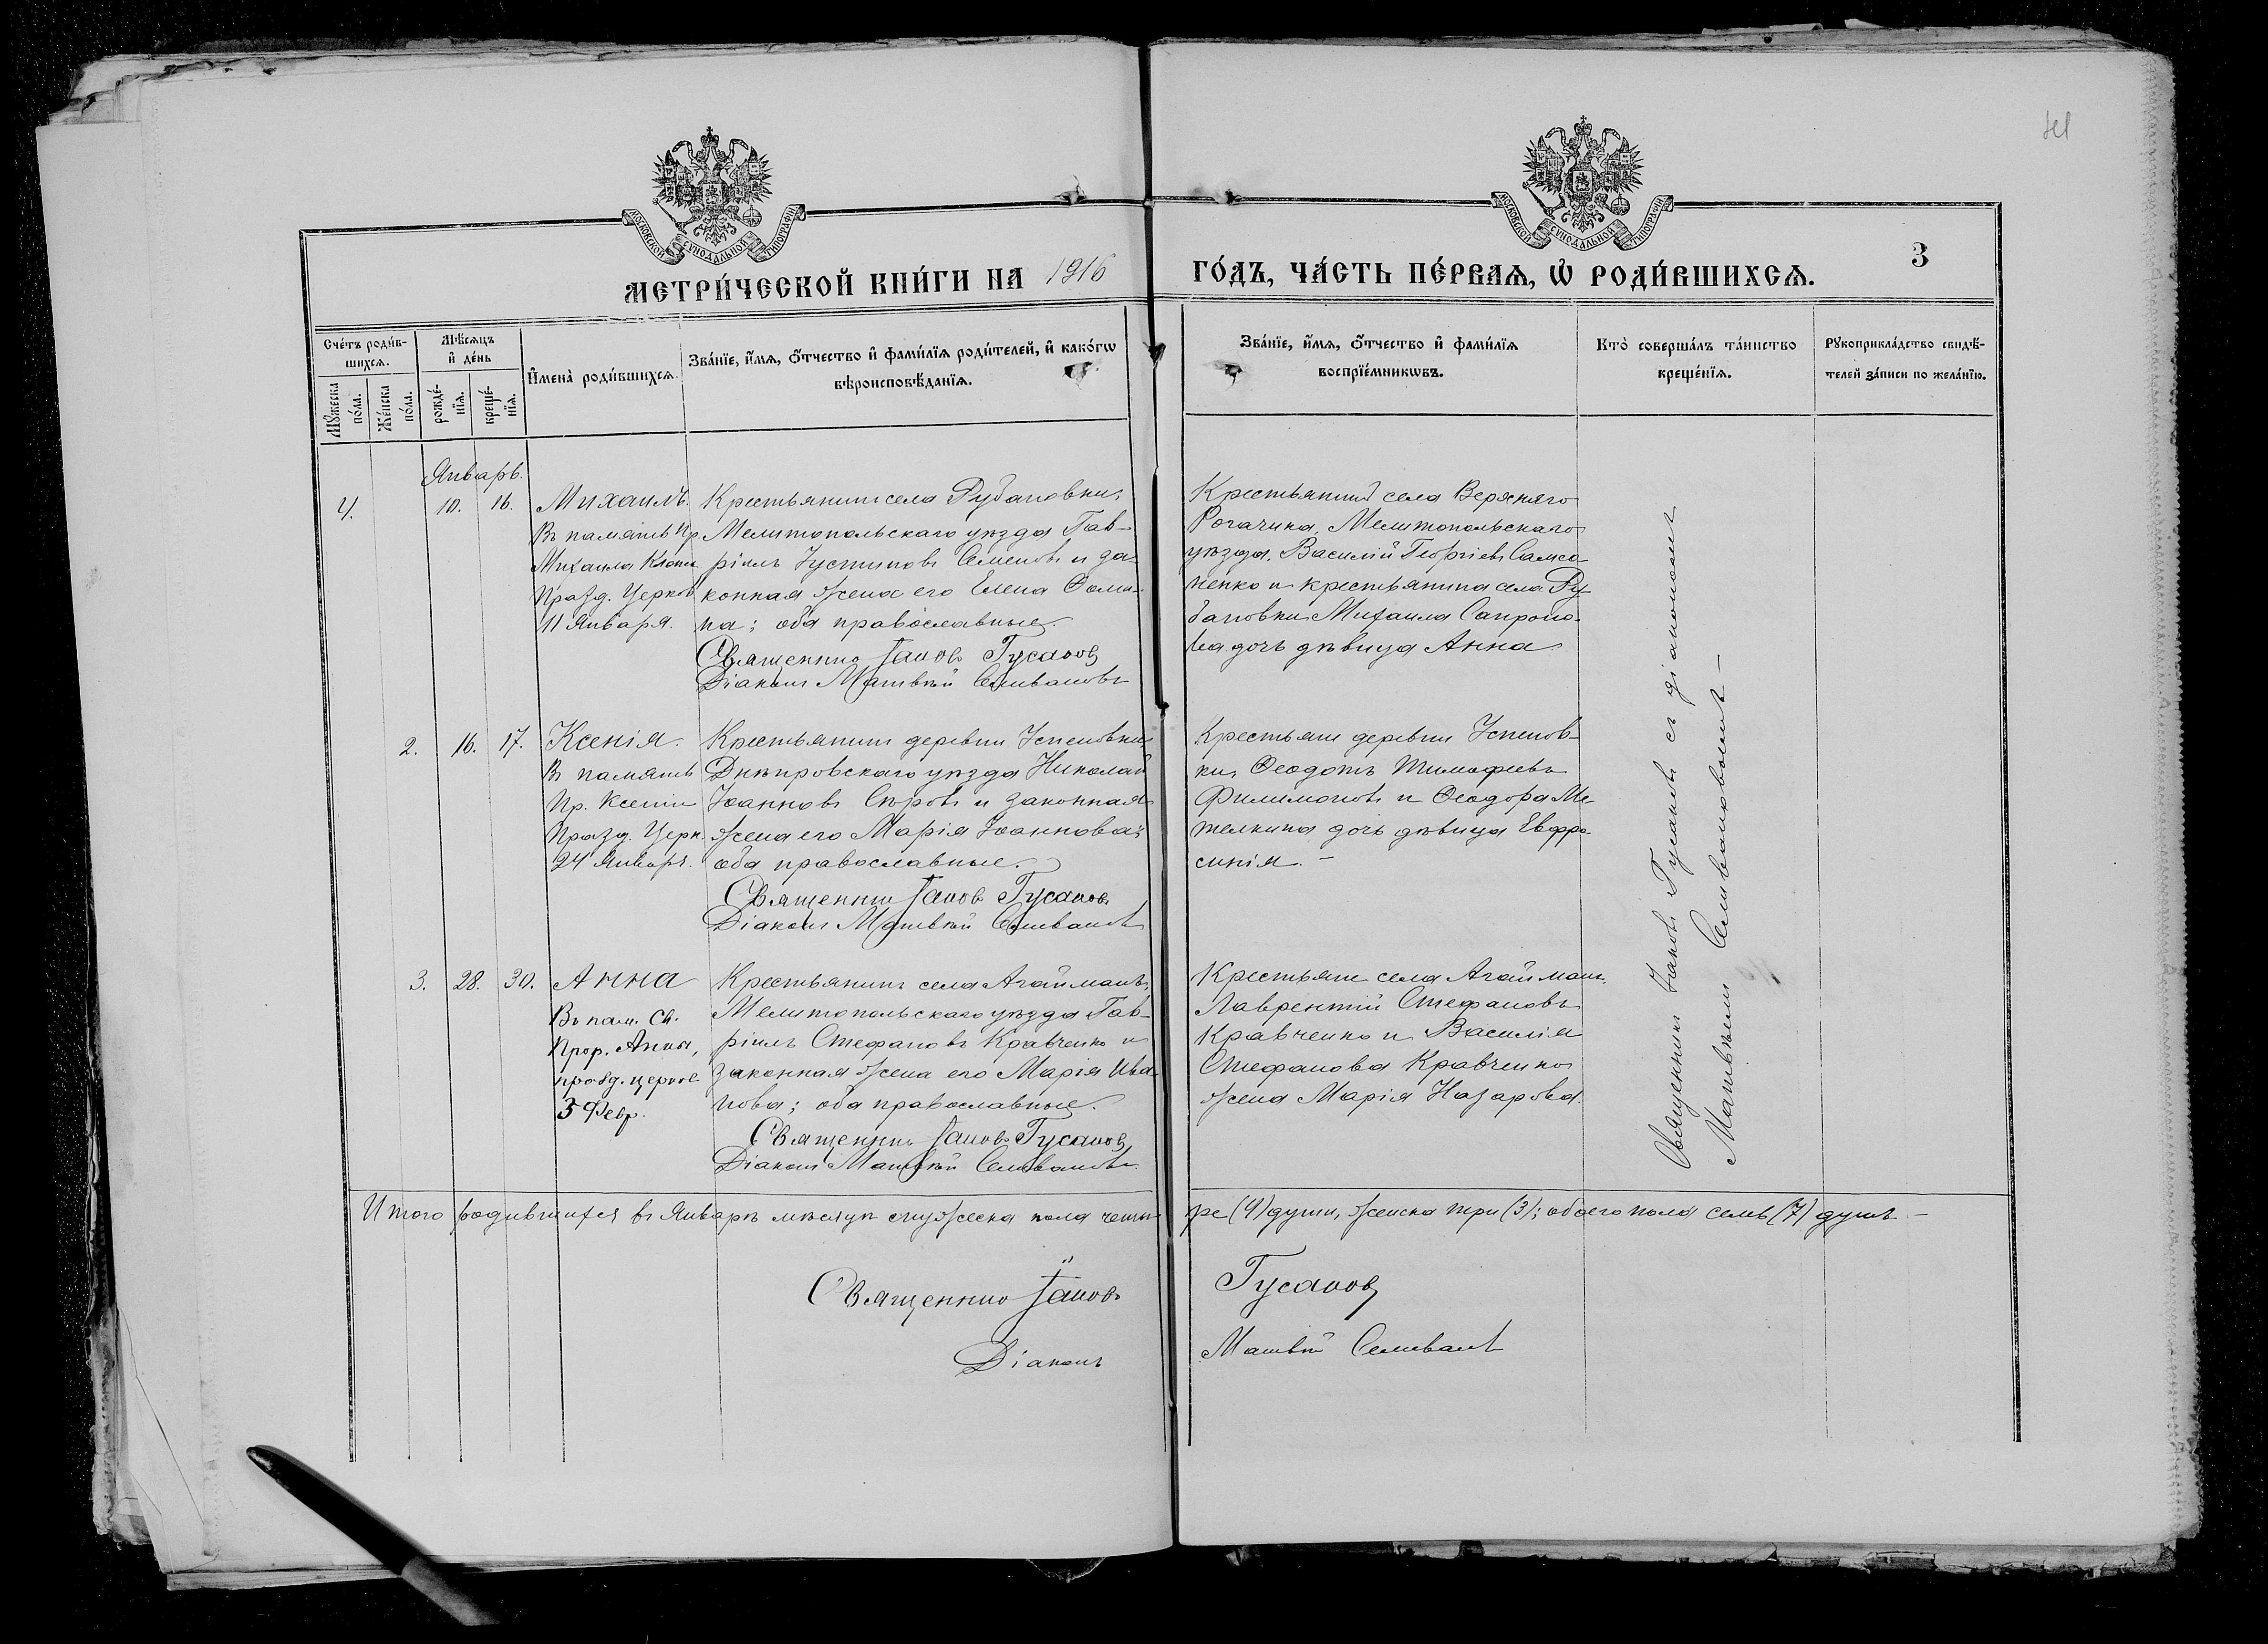 141
МОСКОВСКОЙ СѴНОДАЛЬНОЙ ТИПОГРАФІИ
МОСКОВСКОЙ СѴНОДАЛЬНОЙ ТИПОГРАФІИ
МЕТРИ́ЧЕСКОЙ КНИ́ГИ НА 1916
ГО́ДЪ, ЧА́СТЬ ПЕ́РВАѦ, Ѡ҆ РОДИ́ВШИХСѦ.
3
Сче́тъ роди́в-
шихсѧ.
Мꙋ́жеска по́ла.
Же́нска по́ла.
Мѣ́сѧцъ
и҆ де́нь
рожде́-
нїѧ.
креще́-
нїѧ.
И҆мена̀ роди́вшихсѧ.
Зва́нїе, и҆́мѧ, ѻ҆́тчество и҆ фами́лїѧ роди́телей, и҆ како́гѡ
вѣроисповѣ́данїѧ.
Зва́нїе, и҆́мѧ, ѻ҆́тчество и҆ фами́лїѧ
воспрїе́мникѡвъ.
Кто̀ соверша́лъ та́инство
креще́нїѧ.
Рꙋкоприкла́дство свидѣ́-
телей за́писи по жела́нїю.
Январь.
4. 10. 16.
Михаилъ.
Въ память Пр.
Михаила Клопс.
Празд. Церков
11 Января.
Крестьянинъ села Рубановки,
Мелитопольскаго уѣзда Гав-
ріилъ Іустиновъ Семеновъ и за-
конная жена его Елена Ѳоми-
на; оба православные.
Священникъ Іаковъ Гусаковъ
Діаконъ Матвѣй Селивановъ
Крестьянинъ села Верхняго
Рогачика, Мелитопольскаго
уѣзда, Василій Георгіевъ Самсо-
ненко и крестьянина села Ру-
бановки Михаила Сапроно-
ва дочь дѣвица Анна
2. 16. 17.
Ксенія.
Въ память
Пр. Ксеніи
Празд. Церк.
24 Января.
Крестьянинъ деревни Успеновки
Днѣпровскаго уѣзда Николай
Іоанновъ Сѣровъ и законная
жена его Марія Іоаннова;
оба православные.
Священникъ Іаковъ Гусаковъ
Діаконъ Матвѣй Селивановъ
Крестьяне деревни Успенов-
ки, Ѳеодотъ Тимофеевъ
Филимоновъ и Ѳеодора Ме-
телкина дочь дѣвица Евфро-
синія. –
3. 28. 30.
Анна
Въ пам. Св.
Прор. Анны,
празд. церков
3 Февр.
Крестьянинъ села Агайманъ,
Мелитопольскаго уѣзда Гав-
ріилъ Стефановъ Кравченко и
законная жена его Марія Ива-
нова; оба православные.
Священникъ Іаковъ Гусаковъ
Діаконъ Матвѣй Селивановъ
Крестьяне села Агайманъ,
Лаврентій Стефановъ
Кравченко и Василія
Стефанова Кравченко
жена Марія Назарова.
Священникъ Іаковъ Гусаковъ съ діакономъ
Матвѣемъ Селивановымъ –
Итого родившихся въ Январѣ мѣсяцѣ мужеска пола четы-
ре (4) души, женска три (3); обоего пола семь (7) душъ –
Священникъ Іаковъ Гусаковъ
Діаконъ Матвѣй Селивановъ